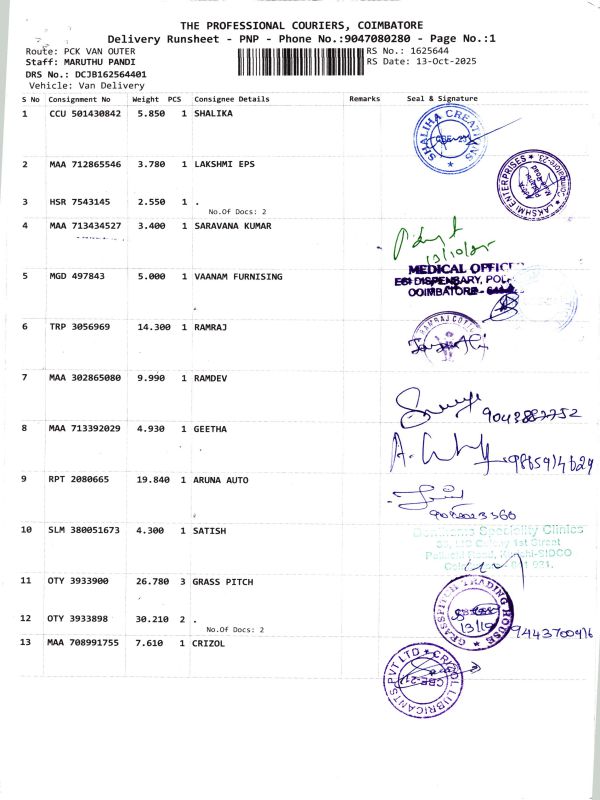 THE PROFESSIONAL COURIERS, COIMBATORE
Delivery Runsheet - PNP - Phone No.:9047080280 - Page No.:1
Route: PCK VAN OUTER
RS No.: 1625644
Staff: MARUTHU PANDI
RS Date: 13-Oct-2025
DRS No.: DCJB162564401
Vehicle: Van Delivery
S No Consignment No Weight PCS Consignee Details Remarks Seal & Signature
1 CCU 501430842 5.850 1 SHALIKA
SHALIHA CREATIONS
2 MAA 712865546 3.780 1 LAKSHMI EPS
LAKSHMI ENTERPRISES
3 HSR 7543145 2.550 1 .
No.Of Docs: 2
4 MAA 713434527 3.400 1 SARAVANA KUMAR
13/10/25
MEDICAL OFFICE
ESI DISPENSARY, POL
COIMBATORE - 641
5 MGD 497843 5.000 1 VAANAM FURNISING
6 TRP 3056969 14.300 1 RAMRAJ
RAMRAJ COTTON
7 MAA 302865080 9.990 1 RAMDEV
8 MAA 713392029 4.930 1 GEETHA
9865914629
9 RPT 2080665 19.840 1 ARUNA AUTO
10 SLM 380051673 4.300 1 SATISH
Speciality Clinics
1st Street
11 OTY 3933900 26.780 3 GRASS PITCH
GRASSPITCH TRADING HOUSE
13/10
9443700916
12 OTY 3933898 30.210 2 .
No.Of Docs: 2
13 MAA 708991755 7.610 1 CRIZOL
CRIZOL LUBRICANTS PVT LTD
CBE-21